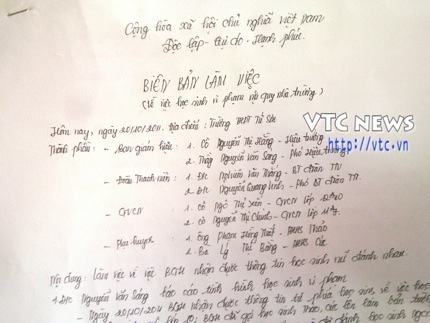 Cộng hòa xã hội chủ nghĩa việt nam
Độc lập - tự do - Hạnh phúc.
BIÊN BẢN LÀM VIỆC
(Về việc học sinh vi phạm nội quy nhà trường)
VTC NEWS
http://vtc.vn
Hôm nay, ngày 20/10/2011. Địa chỉ: Trường THPT
Thành phần: - Ban giám hiệu: 1. Cô Nguyễn Thị Hằng - Hiệu trưởng
2. Thầy Nguyễn Văn Sáng - Phó Hiệu trưởng
- Đoàn Thanh niên: 1. Đ/c Nguyễn Văn Thắng - BT đoàn TN
2. Đ/c Nguyễn Quang Vinh - Phó BT đoàn TN.
- GVCN 1. cô Ngô Thị Xán - GVCN lớp
2. cô Nguyễn Thị Chinh - GVCN lớp
- Phụ huynh 1. Ông Phạm Hùng - PHHS Thảo
2. Bà Lý Thị Bằng - PHHS
Nội dung: Làm việc về việc BGH nhận được thông tin học sinh nữ đánh nhau.
1. Đ/c Nguyễn Văn Sáng báo cáo tình hình học sinh vi phạm.
- Ngày 20/10/2011 BGH nhận được thông tin từ phía học sinh về việc